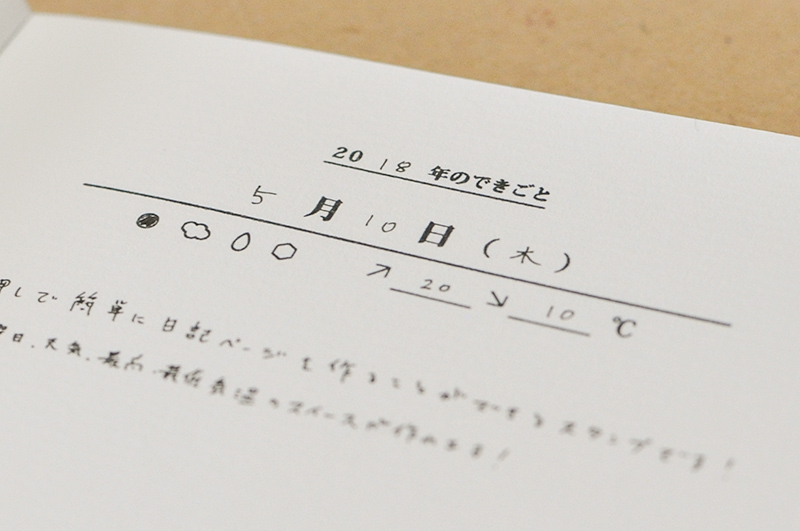 2018年のできごと
5月10日(木)
↗ 20 ↘ 10 ℃
押して簡単に日記ページを作ることができるスタンプです!
日、天気、最高、最低気温のスペースが作れます!